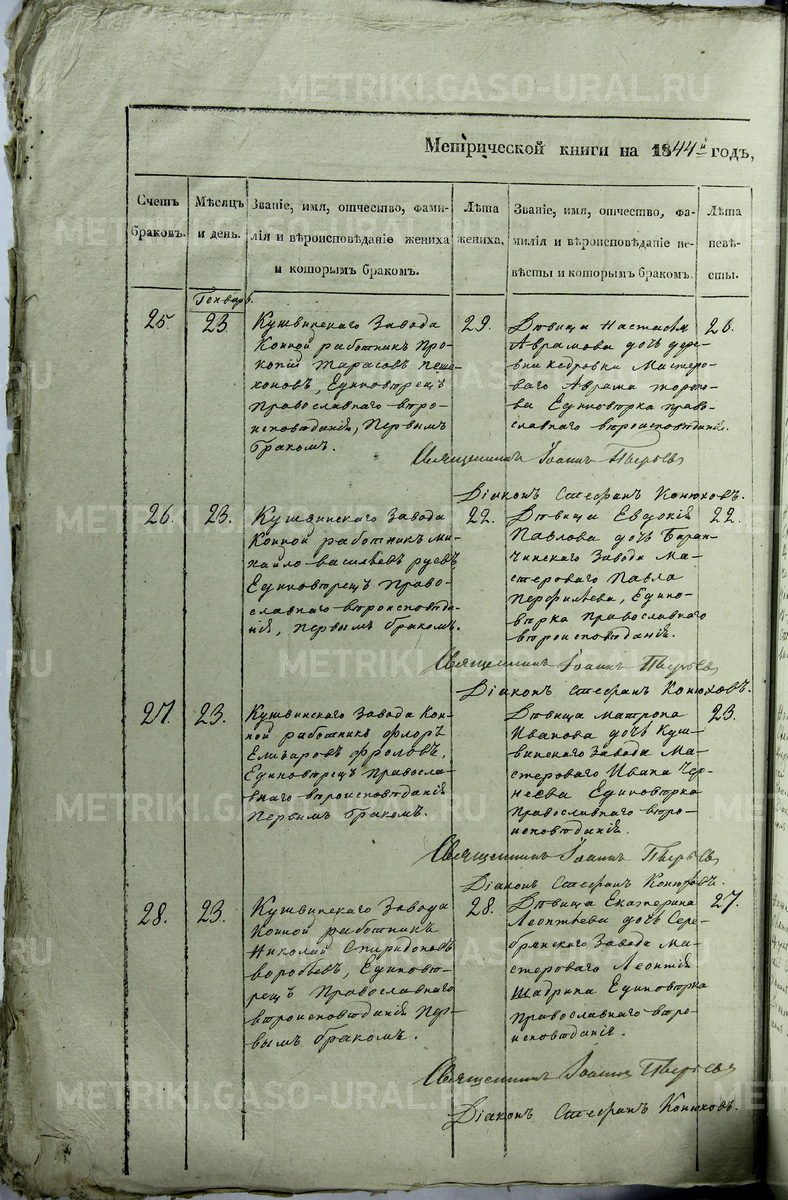 METRIKI.GASO-URAL.RU
Метрической книги на 1844й годъ,
Счетъ браковъ.
Мѣсяцъ и день.
Званіе, имя, отчество, фами-
лія и вѣроисповѣданіе жениха
и которымъ бракомъ.
Лѣта жениха,
Званіе, имя, отчество, фа-
милія и вѣроисповѣданіе не-
вѣсты и которымъ бракомъ.
Лѣта невѣ-
сты.
Генварь.
25.
23
Кушвинскаго Завода
Конной работникъ Про-
копій Тарасовъ Пеше-
хоновъ, Единовѣрецъ
Православнаго вѣро-
исповѣданія, Первымъ
бракомъ.
29.
Дѣвица Настасья
Аврамова дочь дере-
вни Кедровки Мастеро-
ваго Аврама
Единовѣрка право-
славнаго вѣроисповѣданія.
26.
Священникъ Іоаннъ
Діаконъ Стефанъ Конюховъ.
26.
23.
Кушвинскаго Завода
Конной работникъ Ми-
хайло Васильевъ
Единовѣрецъ Право-
славнаго вѣроисповѣда-
нія, Первымъ бракомъ.
22.
Дѣвица Евдокія
Павлова дочь Баран-
чинскаго Завода Ма-
стероваго Павла
Перфильева, Едино-
вѣрка Православнаго
вѣроисповѣданія.
22.
Священникъ Іоаннъ
Діаконъ Стефанъ Конюховъ.
27.
23.
Кушвинскаго Завода Кон-
ной работникъ Флоръ
Елизаровъ Фроловъ,
Единовѣрецъ Правосла-
внаго вѣроисповѣданія
Первымъ бракомъ.
Дѣвица Матрона
Иванова дочь Куш-
винскаго Завода Ма-
стероваго Ивана
Единовѣрка
Православнаго вѣро-
исповѣданія.
23.
Священникъ Іоаннъ
Діаконъ Стефанъ Конюховъ.
28.
23.
Кушвинскаго Завода
Конной работникъ
Николай Спиридоновъ
Воробьевъ, Единовѣ-
рецъ Православнаго
вѣроисповѣданія Пер-
вымъ бракомъ.
28.
Дѣвица Екатерина
Леонтьева дочь Сере-
брянскаго Завода Ма-
стероваго Леонтія
Шадрина Единовѣрка
Православнаго вѣро-
исповѣданія.
27.
Священникъ Іоаннъ
Діаконъ Стефанъ Конюховъ.